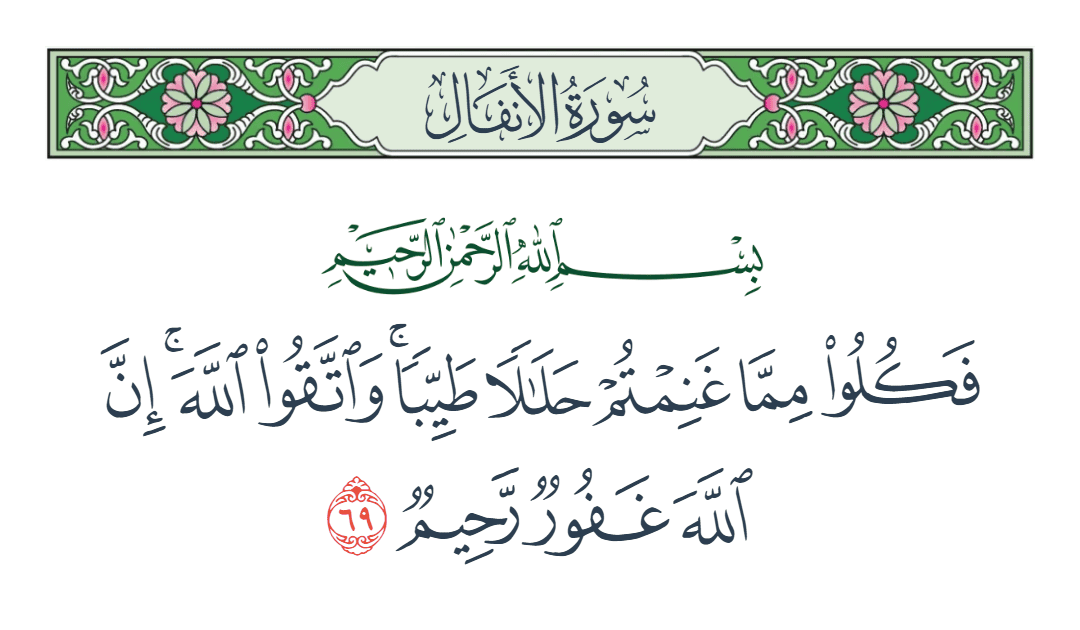 سُورَةُ الأَنفَالِ
بِسْمِ ٱللَّهِ ٱلرَّحْمَٰنِ ٱلرَّحِيمِ
فَكُلُوا۟ مِمَّا غَنِمْتُمْ حَلَٰلًا طَيِّبًا ۚ وَٱتَّقُوا۟ ٱللَّهَ ۚ إِنَّ
ٱللَّهَ غَفُورٌ رَّحِيمٌ ٦٩